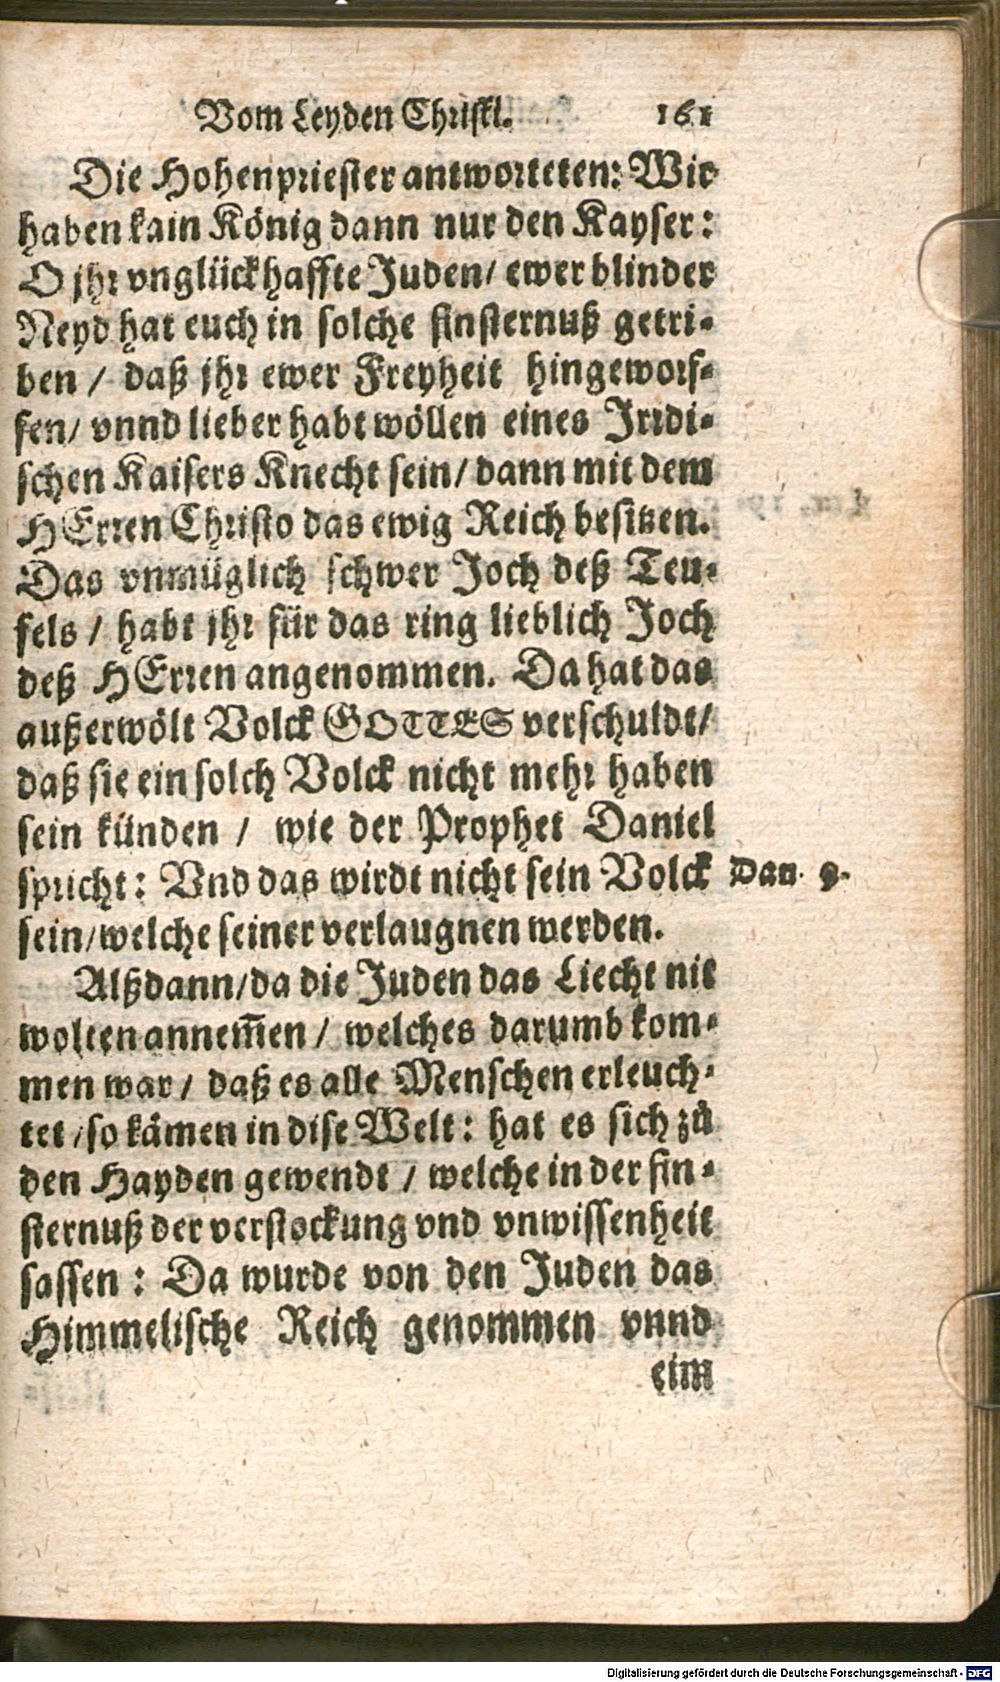 Vom Leyden Christi. 161
Die Hohenpriester antworteten: Wir
haben kain König dann nur den Kayser:
O jhr vnglückhaffte Juden/ ewer blinder
Neyd hat euch in solche finsternuß getri-
ben / daß jhr ewer Freyheit hingeworf-
fen/ vnnd lieber habt wöllen eines Irrdi-
schen Kaisers Knecht sein/ dann mit dem
HErren Christo das ewig Reich besitzen.
Das vnmüglich schwer Joch deß Teu-
fels / habt jhr für das ring lieblich Joch
deß HErren angenommen. Da hat das
außerwölt Volck GOTTES verschuldt/
daß sie ein solch Volck nicht mehr haben
sein künden / wie der Prophet Daniel
spricht: Vnd das wirdt nicht sein Volck Dan. 9.
sein/welche seiner verlaugnen werden.
Alßdann/da die Juden das Liecht nit
wolten annem̃en / welches darumb kom-
men war/ daß es alle Menschen erleuch-
tet/so kämen in dise Welt: hat es sich zů
den Hayden gewendt / welche in der fin-
sternuß der verstockung vnd vnwissenheit
sassen: Da wurde von den Juden das
Himmelische Reich genommen vnnd
eim
Digitalisierung gefördert durch die Deutsche Forschungsgemeinschaft - DFG